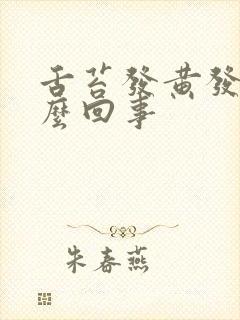 舌苔發黃發
麼回事
朱春燕